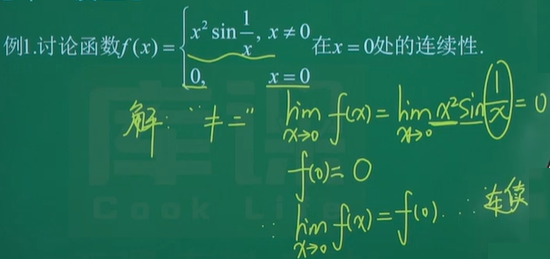 例1.讨论函数f(x)={x² sin 1/x, x≠0
0, x=0
在x=0处的连续性.
解: "≠ =" lim x→0 f(x)=lim x→0 x² sin(1/x)=0
f(0)=0
∵ lim x→0 f(x)=f(0). ∴ 连续
库课
Cook Life